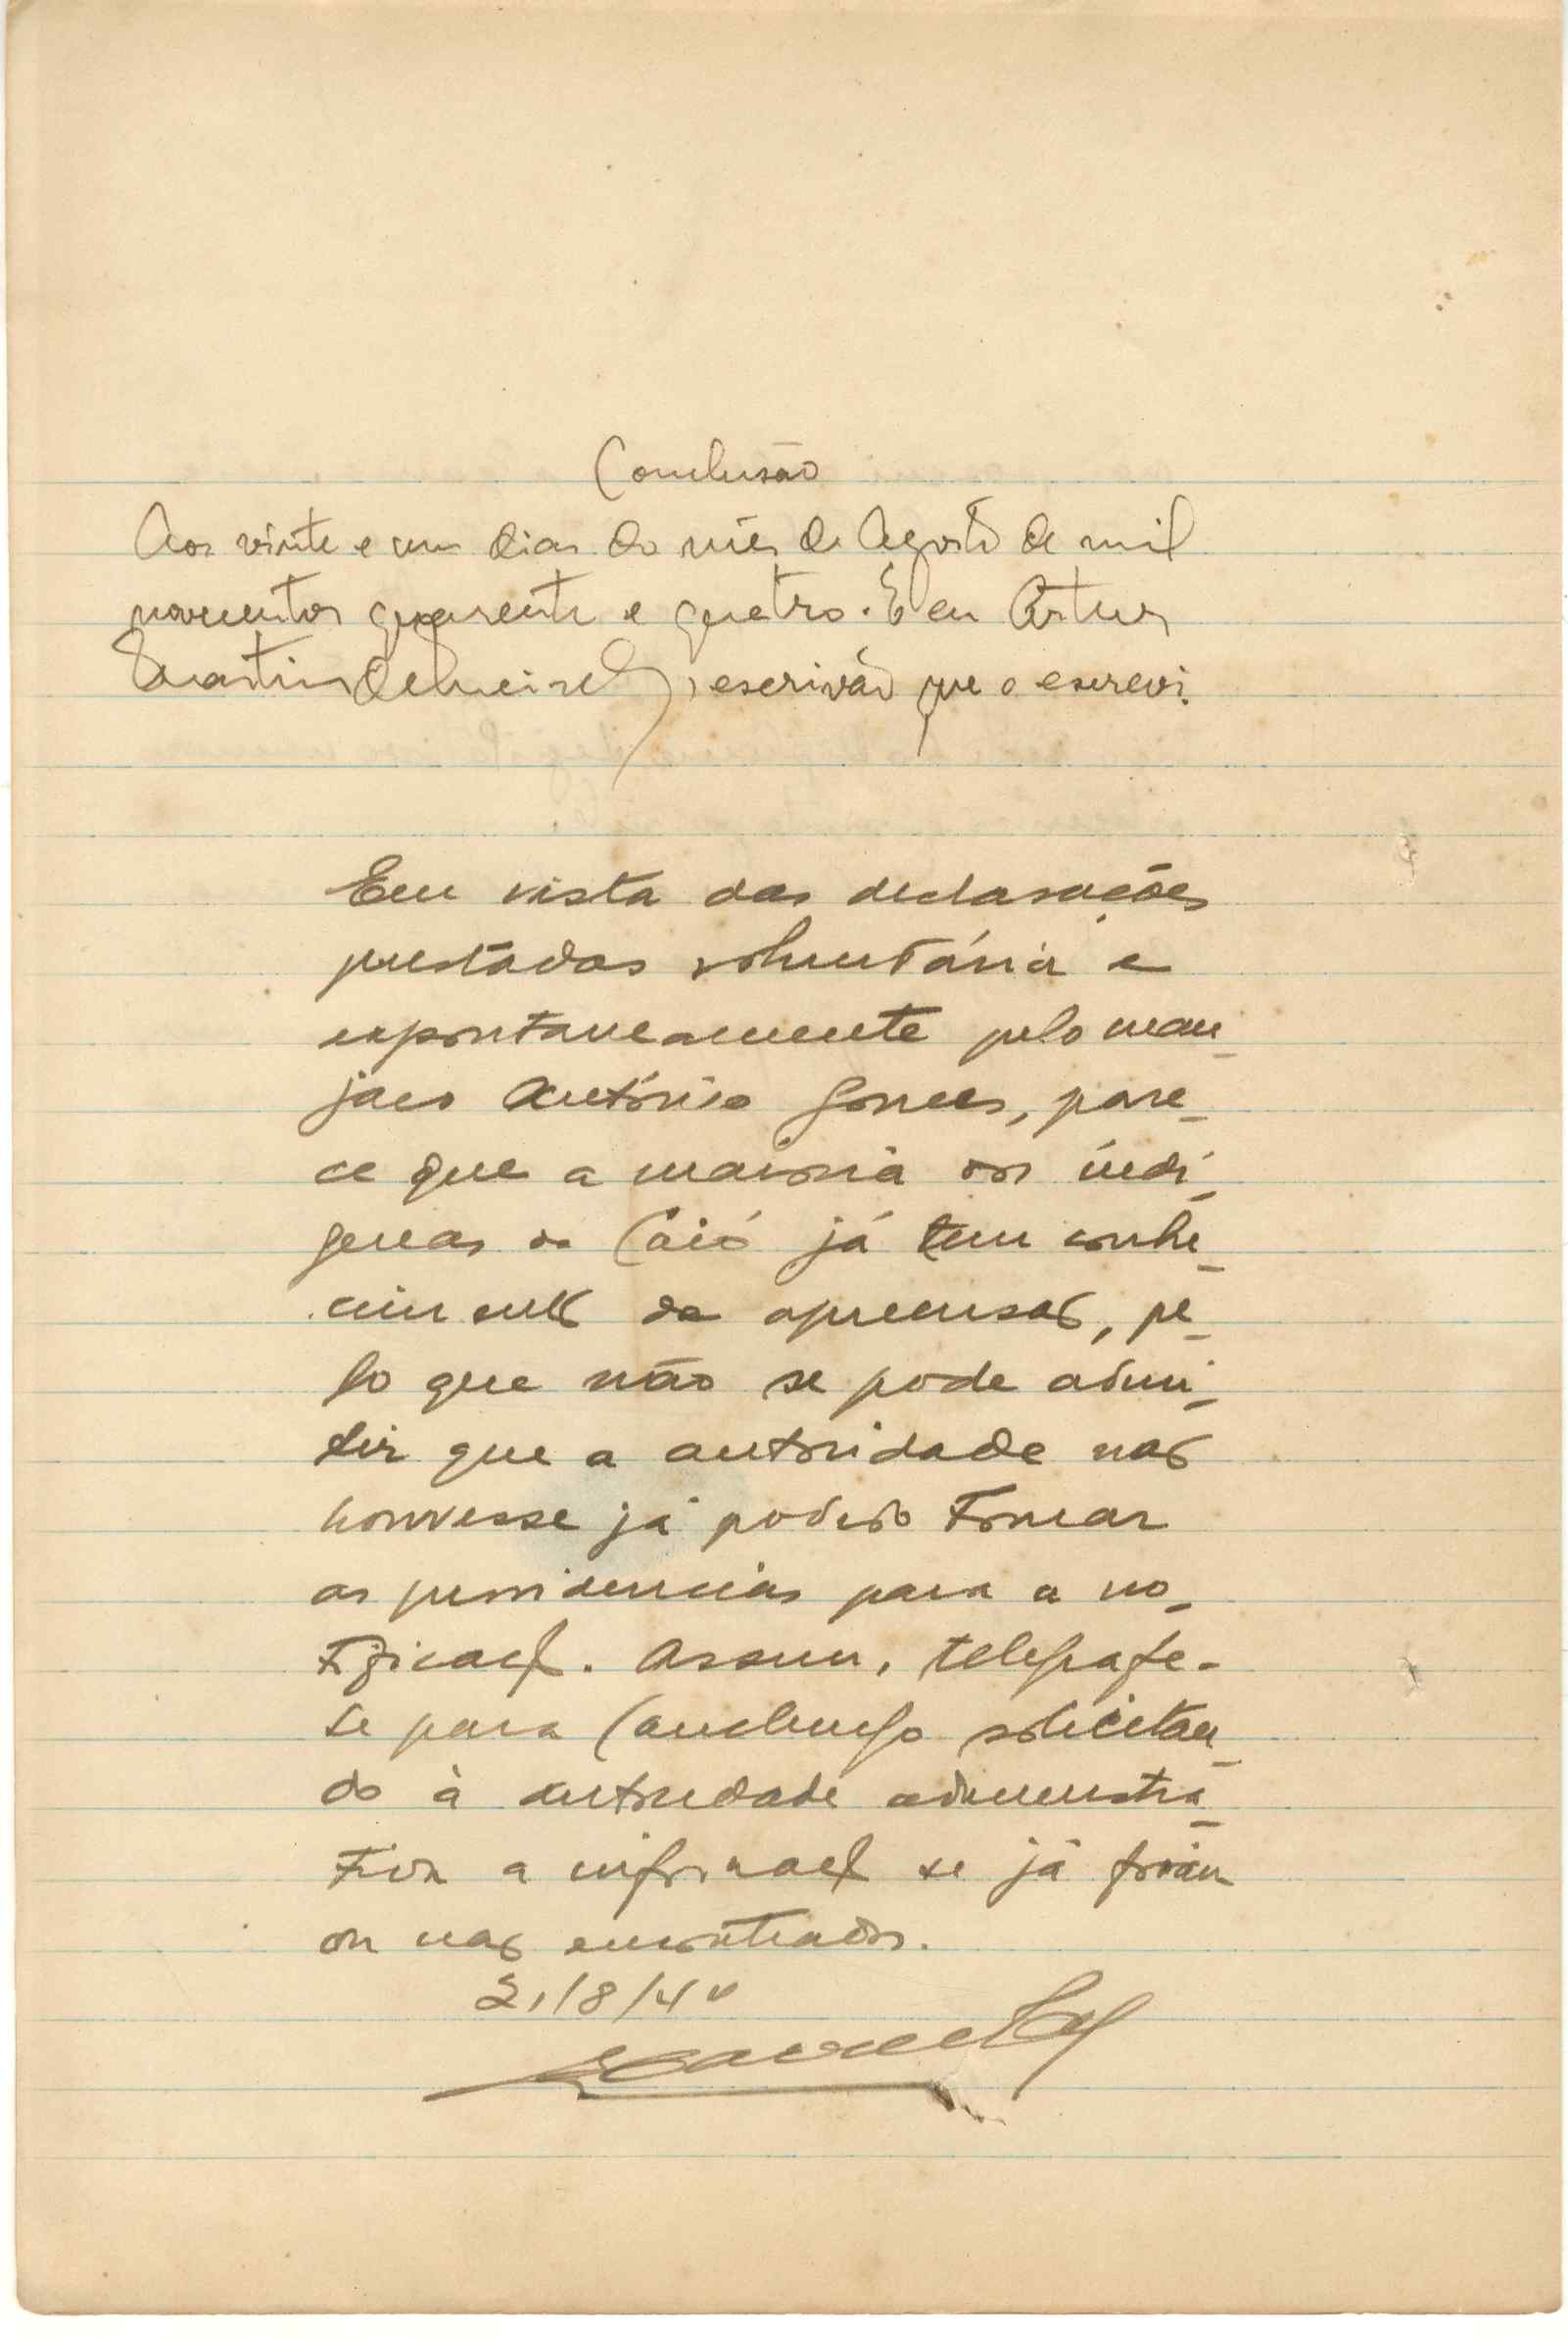 Conclusão
Aos vinte e um dias do mês de Agosto de mil
novecentos quarenta e quatro. E eu Artur
Martins de Meireles, escrivão que o escrevi.
Em vista das declarações
prestadas voluntária e
espontaneamente pelo man-
jaco António Gomes, pare-
ce que a maioria dos indi-
genas de Caió já tem conhe-
cimento da apreensão, pe-
lo que não se pode admi-
tir que a autoridade não
houvesse já podido tomar
as providencias para a no-
tificação. Assim, telegrafe-
se para Canchungo solicitan-
do à autoridade administra-
tiva a informação se já foram
ou não encontrados.
21/8/44